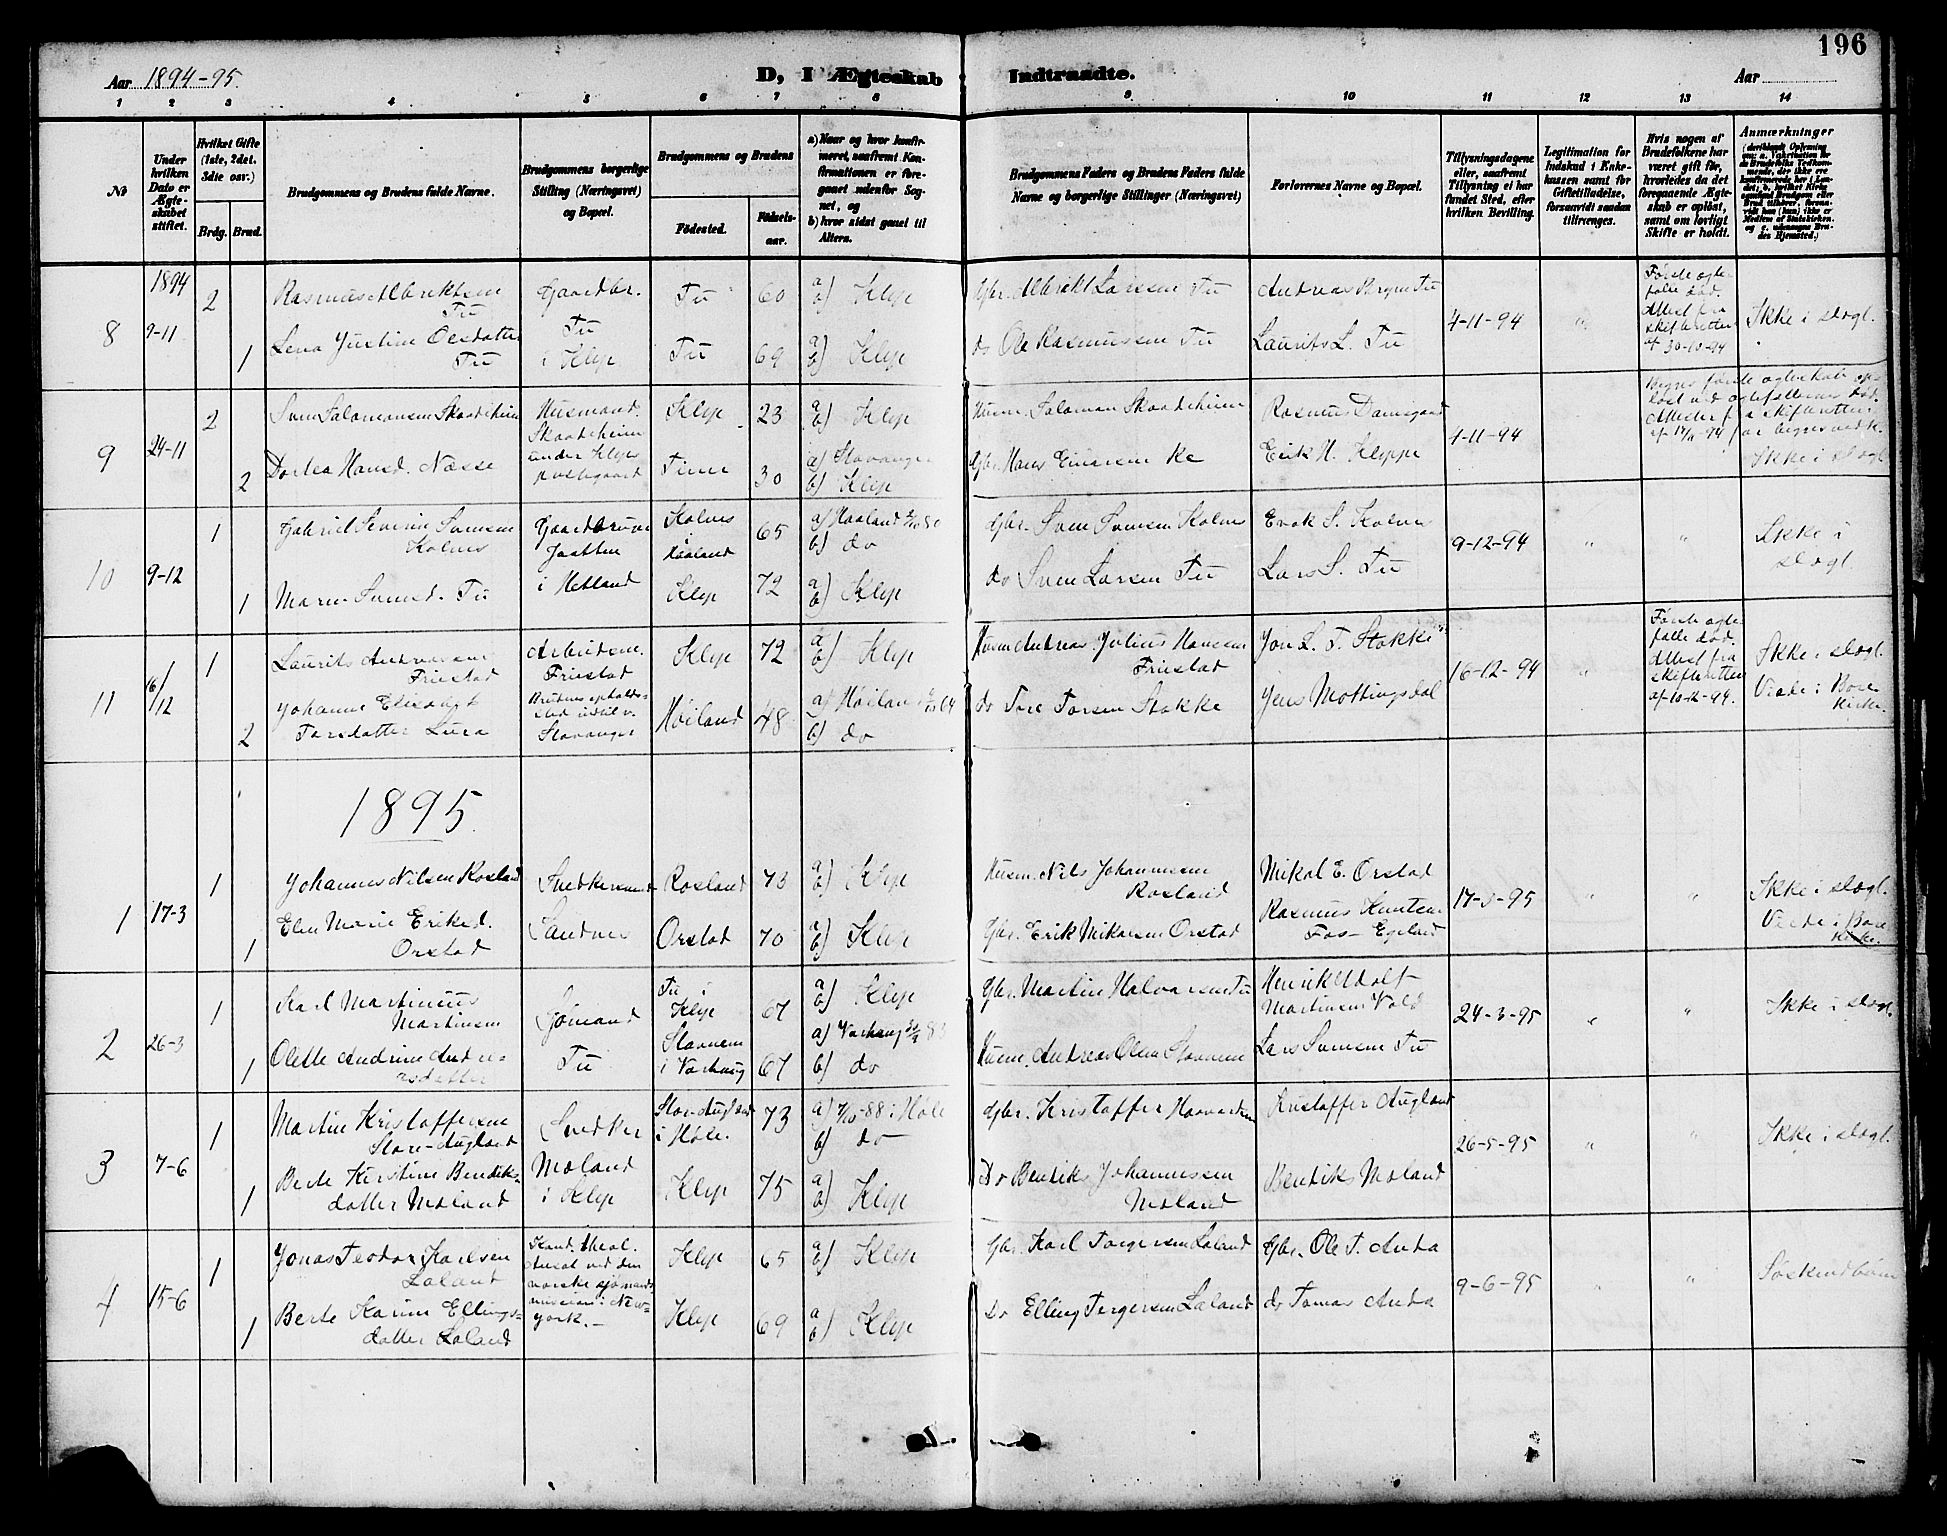 196
Aar 1894-95.
D, I Ægteskab Indtraadte.
Aar
1 2 3 4 5 6 7 8 9 10 11 12 13 14
No
Under hvilken Dato er Ægteskabet stiftet.
Hvilket Gifte (1ste, 2det. 3die osv.)
Brdg. Brud.
Brudgommens og Brudens fulde Navne.
Brudgommens borgerlige Stilling (Næringsvei) og Bopæl.
Brudgommens og Brudens
Fødested. Fødselsaar.
a) Naar og hvor konfirmeret, saafremt Konfirmationen er foregaaet udenfor Sognet, og
b) hvor sidst gaaet til Alters.
Brudgommens Faders og Brudens Faders fulde Navne og borgerlige Stillinger (Næringsvei)
Forlovernes Navne og Bopæl.
Tillysningsdagene eller, saafremt Tillysning ei har fundet Sted, efter hvilken Bevilling.
Legitimation for Indskud i Enkekassen samt for Giftetilladelse, forsaavidt saadan tiltrænges.
Hvis nogen af Brudefolkene har været gift før, hvorledes da det foregaaende Ægteskab er opløst, samt om lovligt Skifte er holdt.
Anmærkninger
8 1894 9-11 2 Rasmus Albriktsen Tu Gaardbr. Tu i Klep Tu 60 a) b) Klep Gbr. Albrikt Larsen Tu Andreas Tu 4-11-94 " Første ægtefælle død. Attest fra skifteretten af 30-10-94 Ikke i slægt.
1 Lena Justine Olsdatter Tu Tu 69 a) b) Klep do Ole Rasmussen Tu Laurits L. Tu
9 24-11 2 Sven Salomonsen Skaadeheim Husmand. Skaadeheim under Kleps prestegaard Klep 23 a) b) Klep Husm. Salomon Skaadeheim Rasmus Damsgaard 4-11-94 Begges første ægteskab opløst ved ægtefællernes død. Ikke i slægt
2 Dortea Hansd. Næsse Time 30 a) Stavanger b) Klep Gbr. Hans Einersen Re Erik H. Kleppe
10 9-12 1 Gabriel Severin Svensen Kolnes Gaardbruger Jaatten i Hetland Kolnes i Haaland 65 a) Haaland b) do Gbr. Sven Svensen Kolnes Erik S. Kolnes 9-12-94 " " Ikke i slægt.
1 Maren Svensd. Tu Klep 72 a) b) Klep do Sven Larsen Tu Lars S. Tu
11 16/12 1 Laurits Andreassen Friestad Arbeidsm. Friestad Klep 72 a) b) Klep Husm. Andreas Julius Hansen Friestad Jon L. T. Stokke 16-12-94 " Første ægtefælle død. Attest fra skifteretten af 10-12-94. Ikke i slægt. Viede i Bore kirke.
2 Johanne Elisabet Torsdatter Lura Brudens opholdssted Stavanger Høiland 48 a) Høiland 64 b) do do Tore Torsen Stokke Jens Mottingsdal
1895
1 17-3 1 Johannes Nilsen Rosland Snedkersvend Sandnes Rosland 73 a) b) Klep Husm. Nils Johannesen Rosland Mikal E. Orstad 17-3-95 " " Ikke i slægt. Viede i Bore kirke.
1 Elen Marie Eriksd. Orstad Orstad 70 a) b) Klep Gbr. Erik Mikalsen Orstad Rasmus Knutsen Fos-Egeland
2 26-3 1 Karl Martinius Martinsen Sømand Tu Tu i Klep 67 a) b) Klep Gbr. Martin Halvorsen Tu Henrik Adolf Martinsen Vold 24-3-95 " " Ikke i slægt.
1 Olette Andrine Andreasdatter Stavnem i Varhaug 67 a) Varhaug 83 b) do Husm. Andreas Olsen Stavnem Lars Svensen Tu
3 7-6 1 Martin Kristoffersen Store-Augland Snedker Møland i Klep Store-Augland i Høle. 73 a) 88 i Høle b) do Gbr. Kristoffer Haavardsen Kristoffer Augland 26-5-95 " " Ikke i slægt.
1 Berte Kirstine Bendiksdatter Møland Klep 75 a) b) Klep Do Bendik Johannessen Møland Bendik Møland
4 15-6 1 Jonas Teodor Karlsen Laland Kand. theol. Ansat ved den norske sjømandsmission i New-york.- Klep 65 a) b) Klep Gbr. Karl Torgersen Laland Gbr. Ole T. Anda 9-6-95 " " Søskendbørn
1 Berte Karine Ellingsdatter Laland Klep 69 a) b) Klep Do Elling Torgersen Laland do Tomas Anda